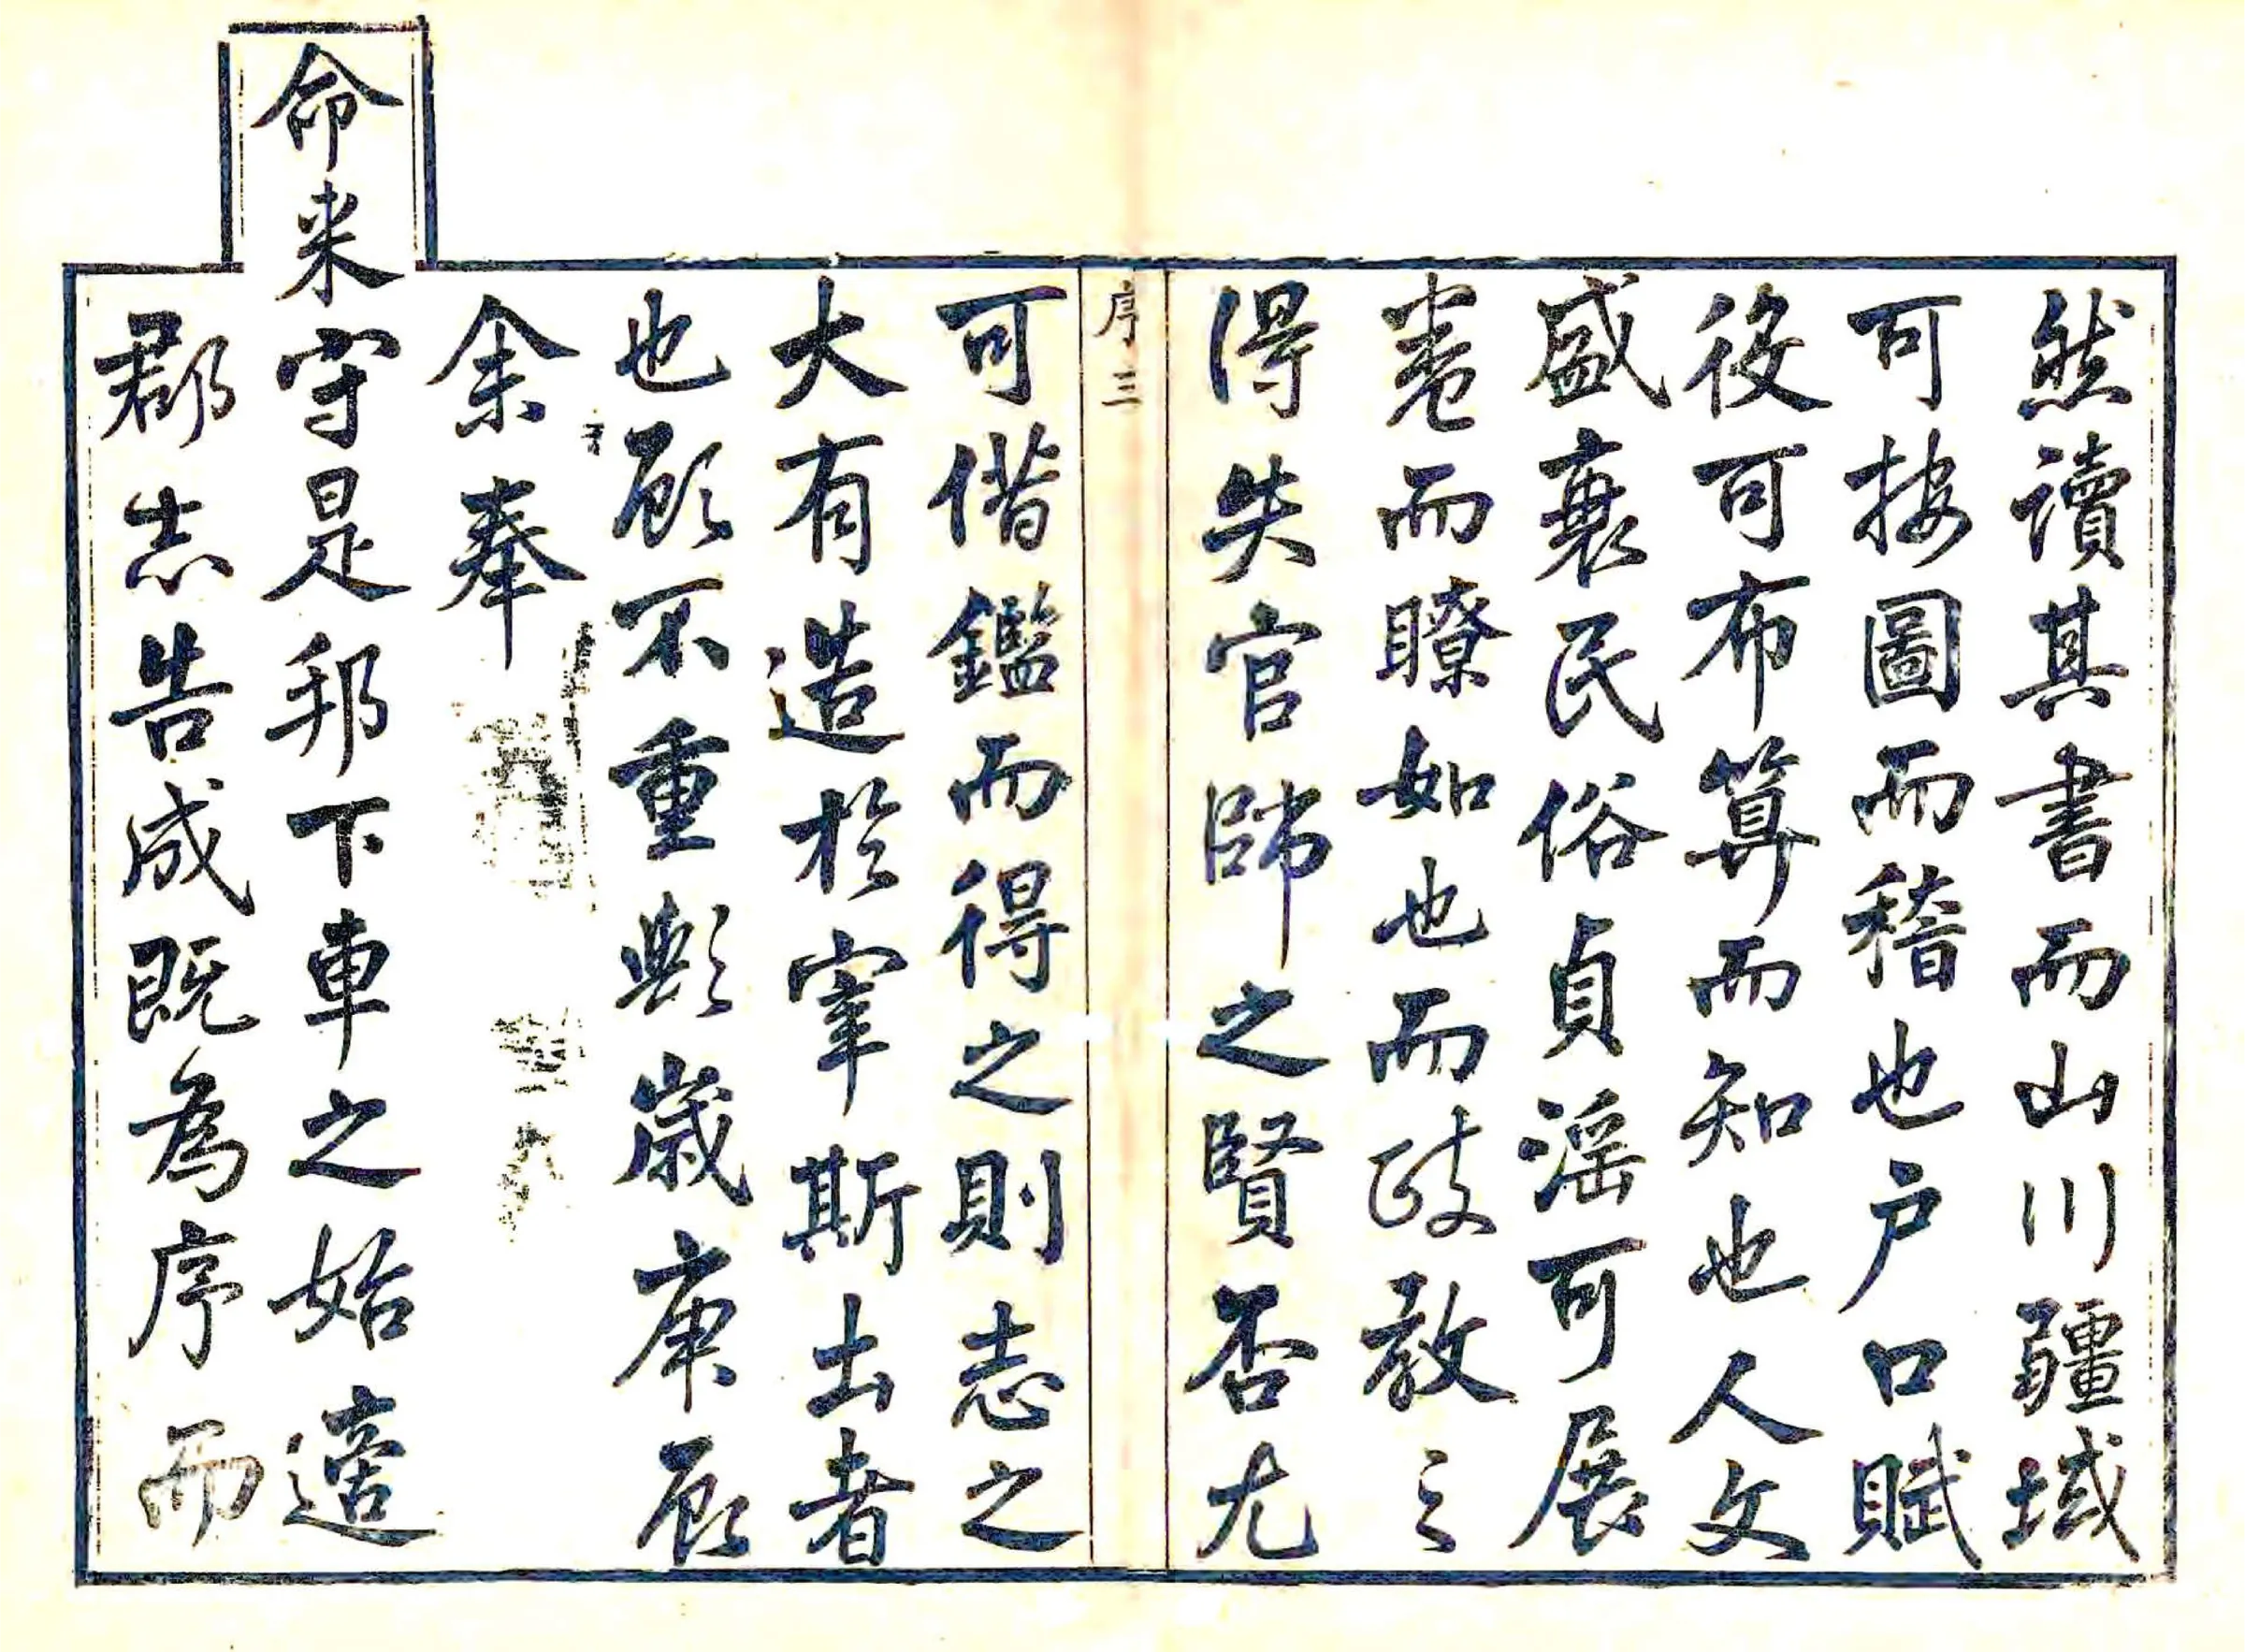 然讀其書而山川疆域
可按圖而稽也户口賦
役可布算而知也人文
盛衰民俗貞淫可展
卷而瞭如也而政教之
得失官師之賢否尤
序三
可借鑑而得之則志之
大有造於宰斯土者
也顧不重歟歲庚辰
余奉
命來守是邦下車之始適
郡志告成既為序而